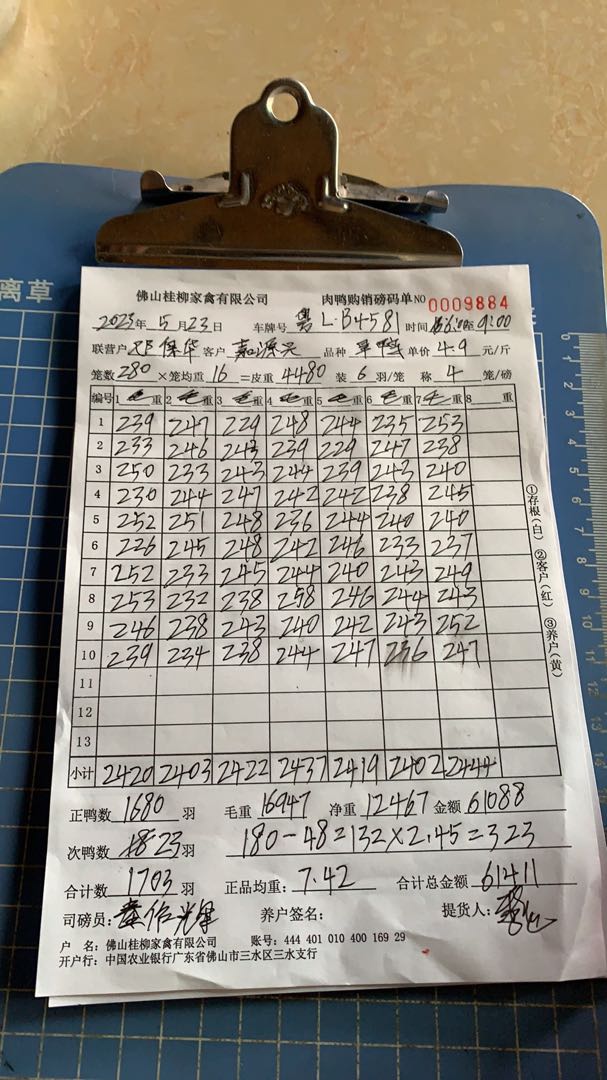 离草
佛山桂柳家禽有限公司 肉鸭购销磅码单 NO 0009884
2023年 5月23日 车牌号 粤L·B4581 时间 至 9:00
联营户 邓保华 客户 嘉源兴 品种 单鸭 单价 4.9 元/斤
笼数 280 ×笼均重 16 =皮重 4480 装 6 羽/笼 称 4 笼/磅
编号 1 毛重 2 毛重 3 毛重 4 毛重 5 毛重 6 毛重 7 毛重 8 重
1 239 247 229 248 244 235 253
2 233 246 243 239 229 247 238
3 250 233 243 244 239 243 240
4 230 244 247 242 242 238 245
5 252 251 248 236 244 240 240
6 226 245 248 242 246 233 237
7 252 233 245 244 240 243 249
8 253 232 238 258 246 244 243
9 246 238 243 240 242 243 252
10 239 234 238 244 247 236 247
11
12
13
小计 2420 2403 2422 2437 2419 2402 2444
正鸭数 1680 羽 毛重 16947 净重 12467 金额 61088
次鸭数 23 羽 180-48=132×2.45=323
合计数 1703 羽 正品均重: 7.42 合计总金额 61411
司磅员: 养户签名: 提货人:
户 名: 佛山桂柳家禽有限公司 账号: 444 401 010 400 169 29
开户行: 中国农业银行广东省佛山市三水区三水支行
①存根(白) ②客户(红) ③养户(黄)